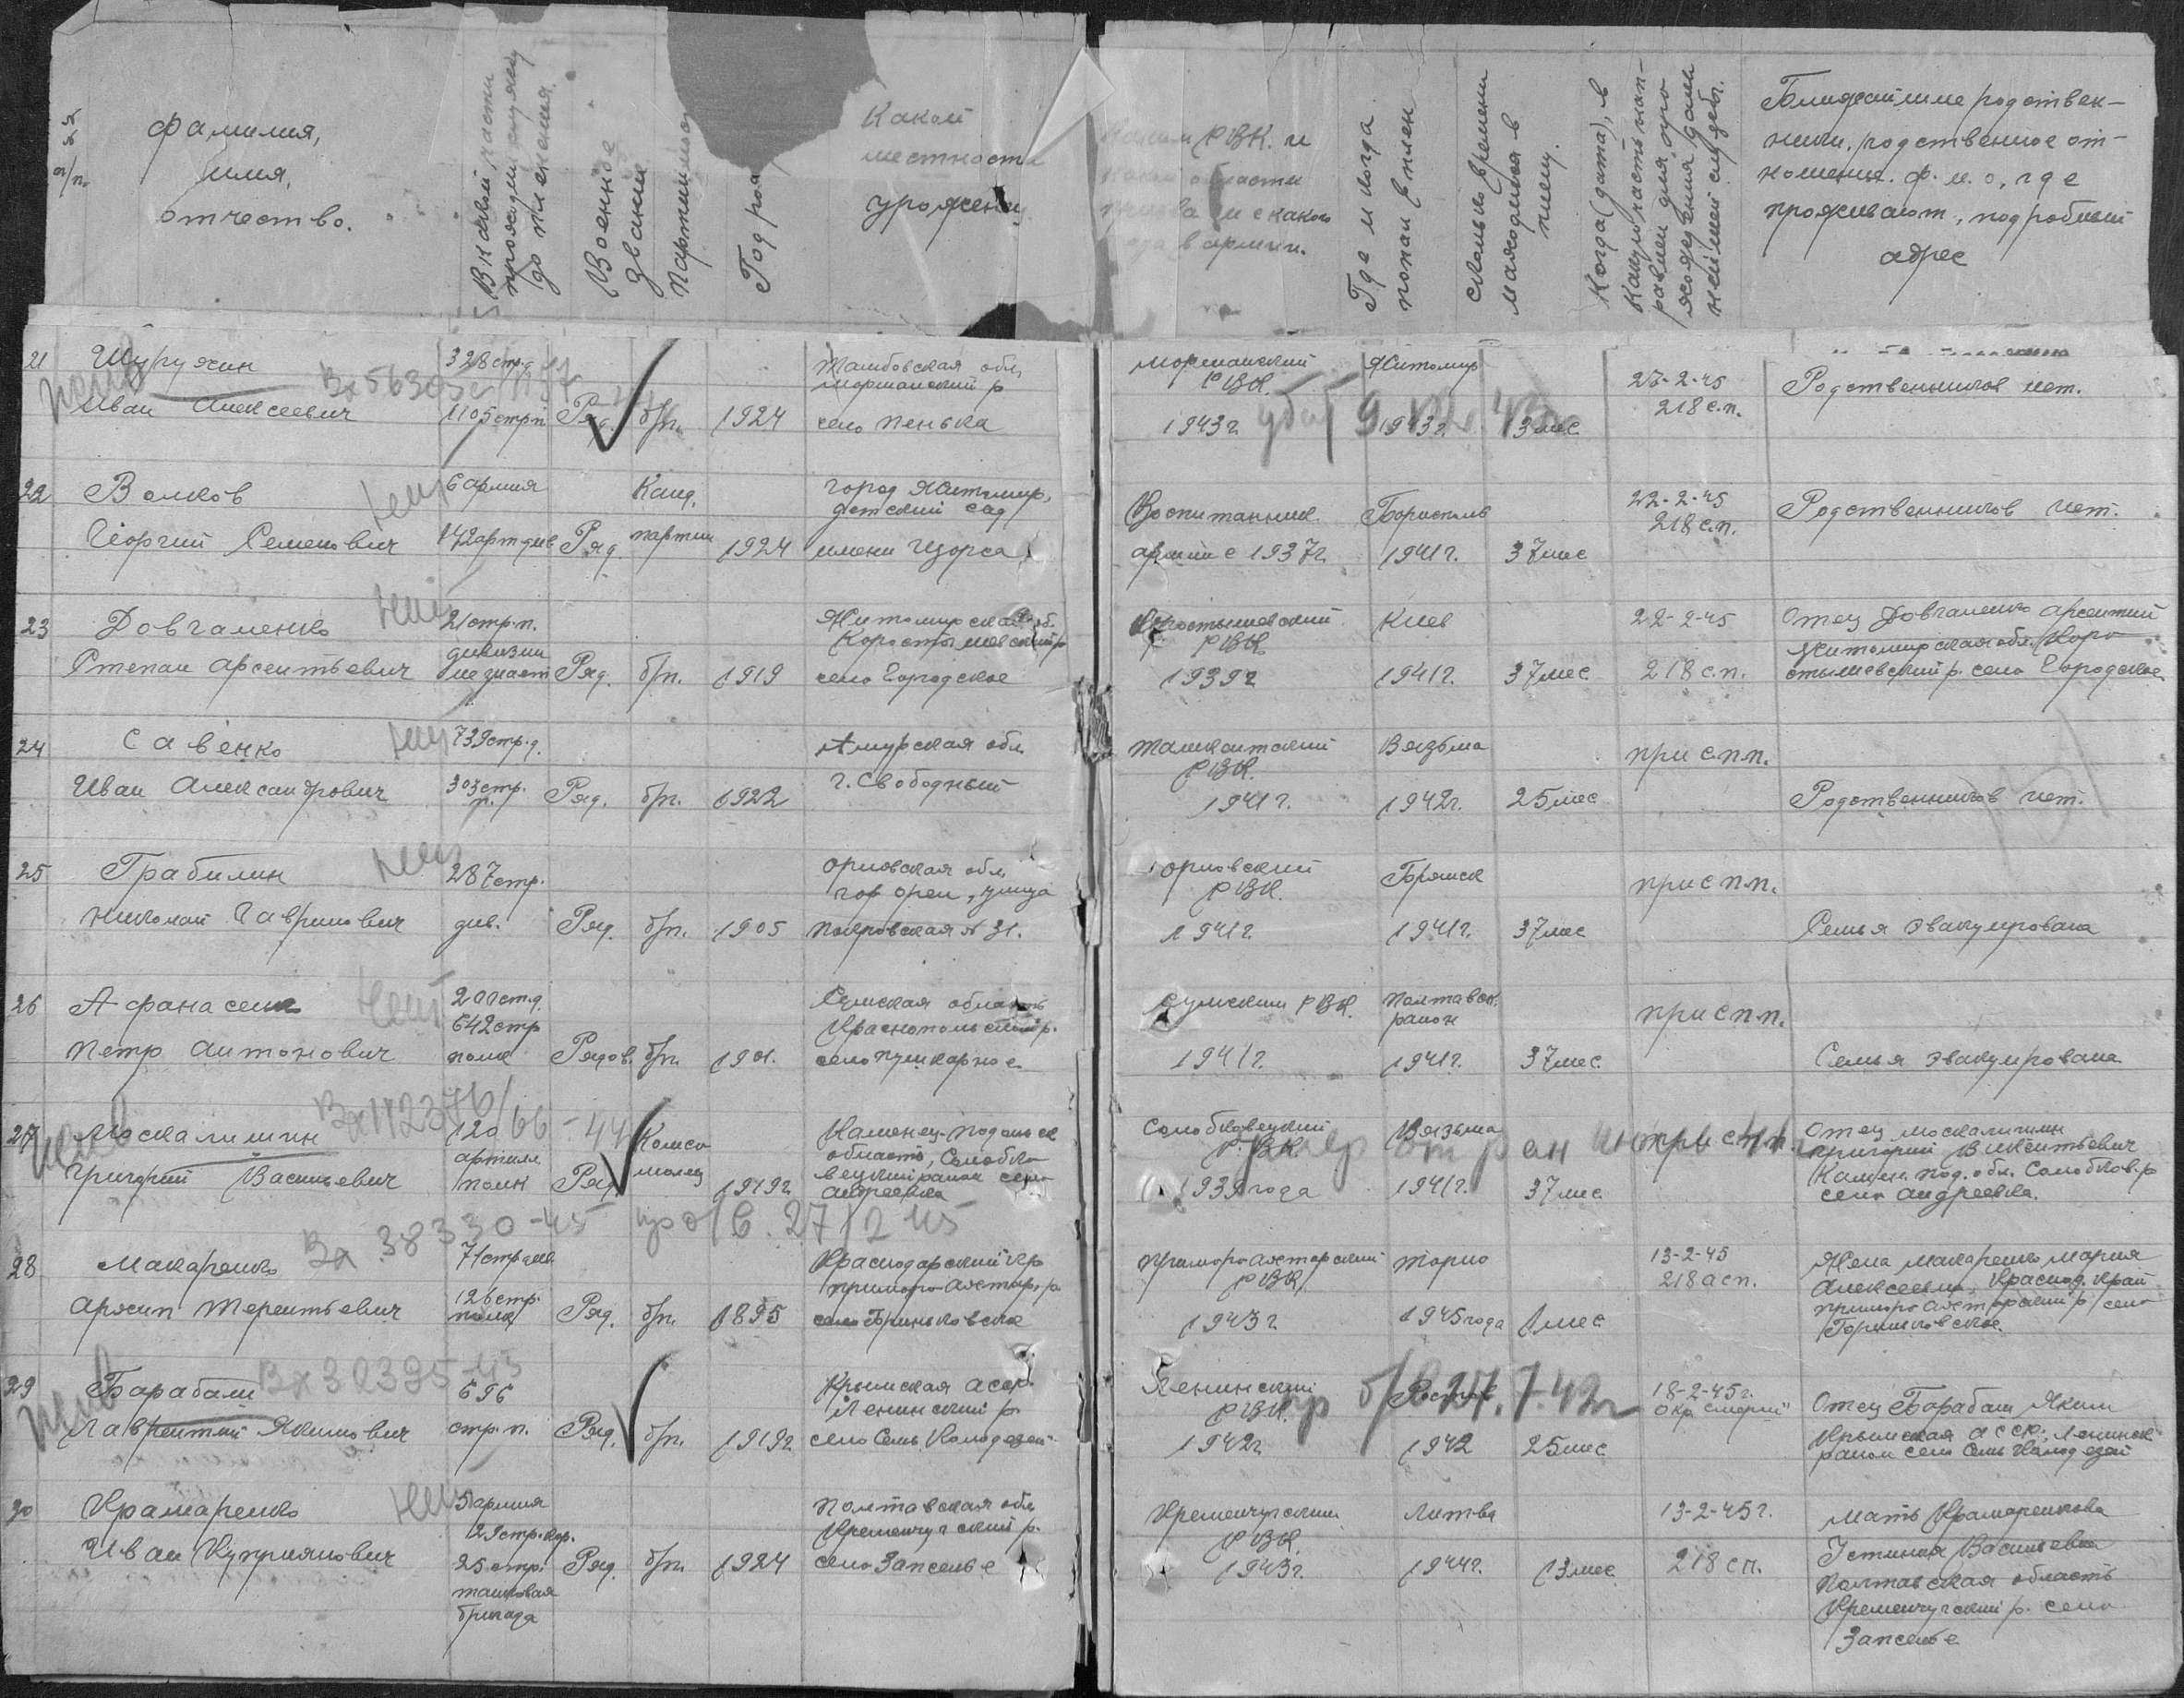 №№ п/п.
Фамилия,
имя,
отчество.
В какой части
проходил службу
до пленения
Военное
звание
Партийность
Год рож
Какой
местности
уроженец
Каким РВК. и
какой области
призван и с какого
года в армии.
Где и когда
попал в плен
сколько времени
находился в
плену.
Когда (дата), в
какую часть нап-
равлен для про
хождения даль
нейшей службы.
Ближайшие родствен-
ники, родственное от-
ношение. ф. и. о, где
проживают, подробный
адрес
21 Шурухин
Иван Алексеевич
328 стр.д
1105 стр.п
Ряд. б/п. 1924
Тамбовская обл,
Моршанский р
село Пенька
Моршанский
РВК.
1943 г.
Житомир
1943 г. 13 мес
23-2-45
218 с.п.
Родственников нет.
22 Волков
Георгий Семенович
6 армия
142 арт див
Ряд.
Канд.
партии
1924
город Житомир,
детский сад
имени Щорса
Воспитанник.
армии с 1937 г.
Борисполь
1941 г. 37 мес
22-2-45
218 с.п.
Родственников нет.
23 Довгаленко
Степан Арсентьевич
21 стр. п.
дивизии
не знает
Ряд. б/п. 1919
Житомирская об.
Коростышевский р
село Городское
Коростышевский
РВК
1939 г
Киев
1941 г. 37 мес
22-2-45
218 с.п.
Отец Довгаленко Арсентий
Житомирская обл. Коро
стышевский р. село Городское.
24 Савенко
Иван Александрович
739 стр. д.
303 стр.
п.
Ряд. б/п. 1922
Амурская обл.
г. Свободный
Ташкентский
РВК.
1941 г.
Вязьма
1942 г. 25 мес
при с.п.п.
Родственников нет.
25 Грабилин
Николай Гаврилович
287 стр.
див.
Ряд. б/п. 1905
Орловская обл,
гор Орел, улица
Покровская № 31.
Орловский
РВК.
1941 г
Брянск
1941 г. 37 мес
при с п.п.
Семья эвакуирована
26 Афанасенк
Петр Антонович
200 ст.д.
642 стр
полк
Рядов. б/п. 1901.
Сумская область
Краснопольский р.
село Пушкарное
Сумским РВК.
1941 г.
Полтавск.
район
1941 г. 37 мес.
при с п.п.
Семья эвакуирована
27 Москалишин
Григорий Васильевич
120
артилл
полк
Ряд
Комсо
молец
1919 г
Каменец-Подольск
область, Солобко
вецкий район село
Андреевка
Солобковецкий
РВК.
1939 года
Вязьма
1941 г. 37 мес
при с п.п.
Отец Москалишин
Григорий Викентьевич
Камен. под. обл. Солобков. р
село Андреевка.
Вх 38330-45 проп/б. 27/2 45
28 Макаренко
Архип Терентьевич
71 стр див.
126 стр.
полк
Ряд. б/п. 1895
Краснодарский кр
Приморо Ахтар. р
село Бриньковское
Приморо Ахтарский
РВК
1943 г
Торно
1945 года 1 мес
13-2-45
218 а с п.
Жена Макаренко Мария
Алексеевна, Краснод. край
Приморо Ахтарский р село
29 Барабаш
Вх 32395-45
Лаврентий Якимович
696
стр. п.
Ряд. б/п. 1919 г
Крымская асср.
Ленинский р.
село Семь Колодезей
Ленинский
РВК.
1942 г
пр б/в 27.7.42 г
Ростов
1942 25 мес
18-2-45 г.
окр "Смерш"
Отец Барабаш Яким
Крымская АССР, Ленинск
район село Семь Колодезей
30 Крамаренко
Иван Куприянович
5 армия
29 стр. кор.
25 стр.
танковая
бригада
Ряд. б/п. 1924
Полтавская обл
Кременчугский р.
село Запселье
Кременчугским
РВК.
1943 г.
Литва
1944 г. 13 мес
13-2-45 г.
218 с п.
Мать Крамаренкова
Устиния Васильевна
Полтавская область
Кременчугский р. село
Запселье